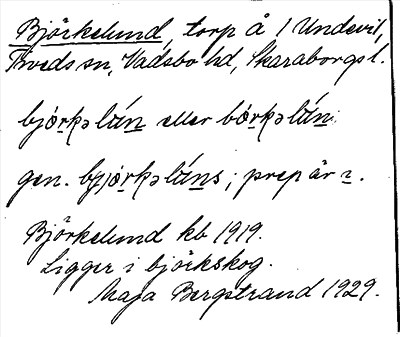 Björkelund, torp å 1 Undevil,
Tiveds sn, Vadsbo hd, Skaraborgs l.
bjórkə lún eller bórkə lún;
gen. bjórkə lúns; prep är ɩ.
Björkelund kb 1919.
Ligger i björkskog.
Maja Bergstrand 1929.